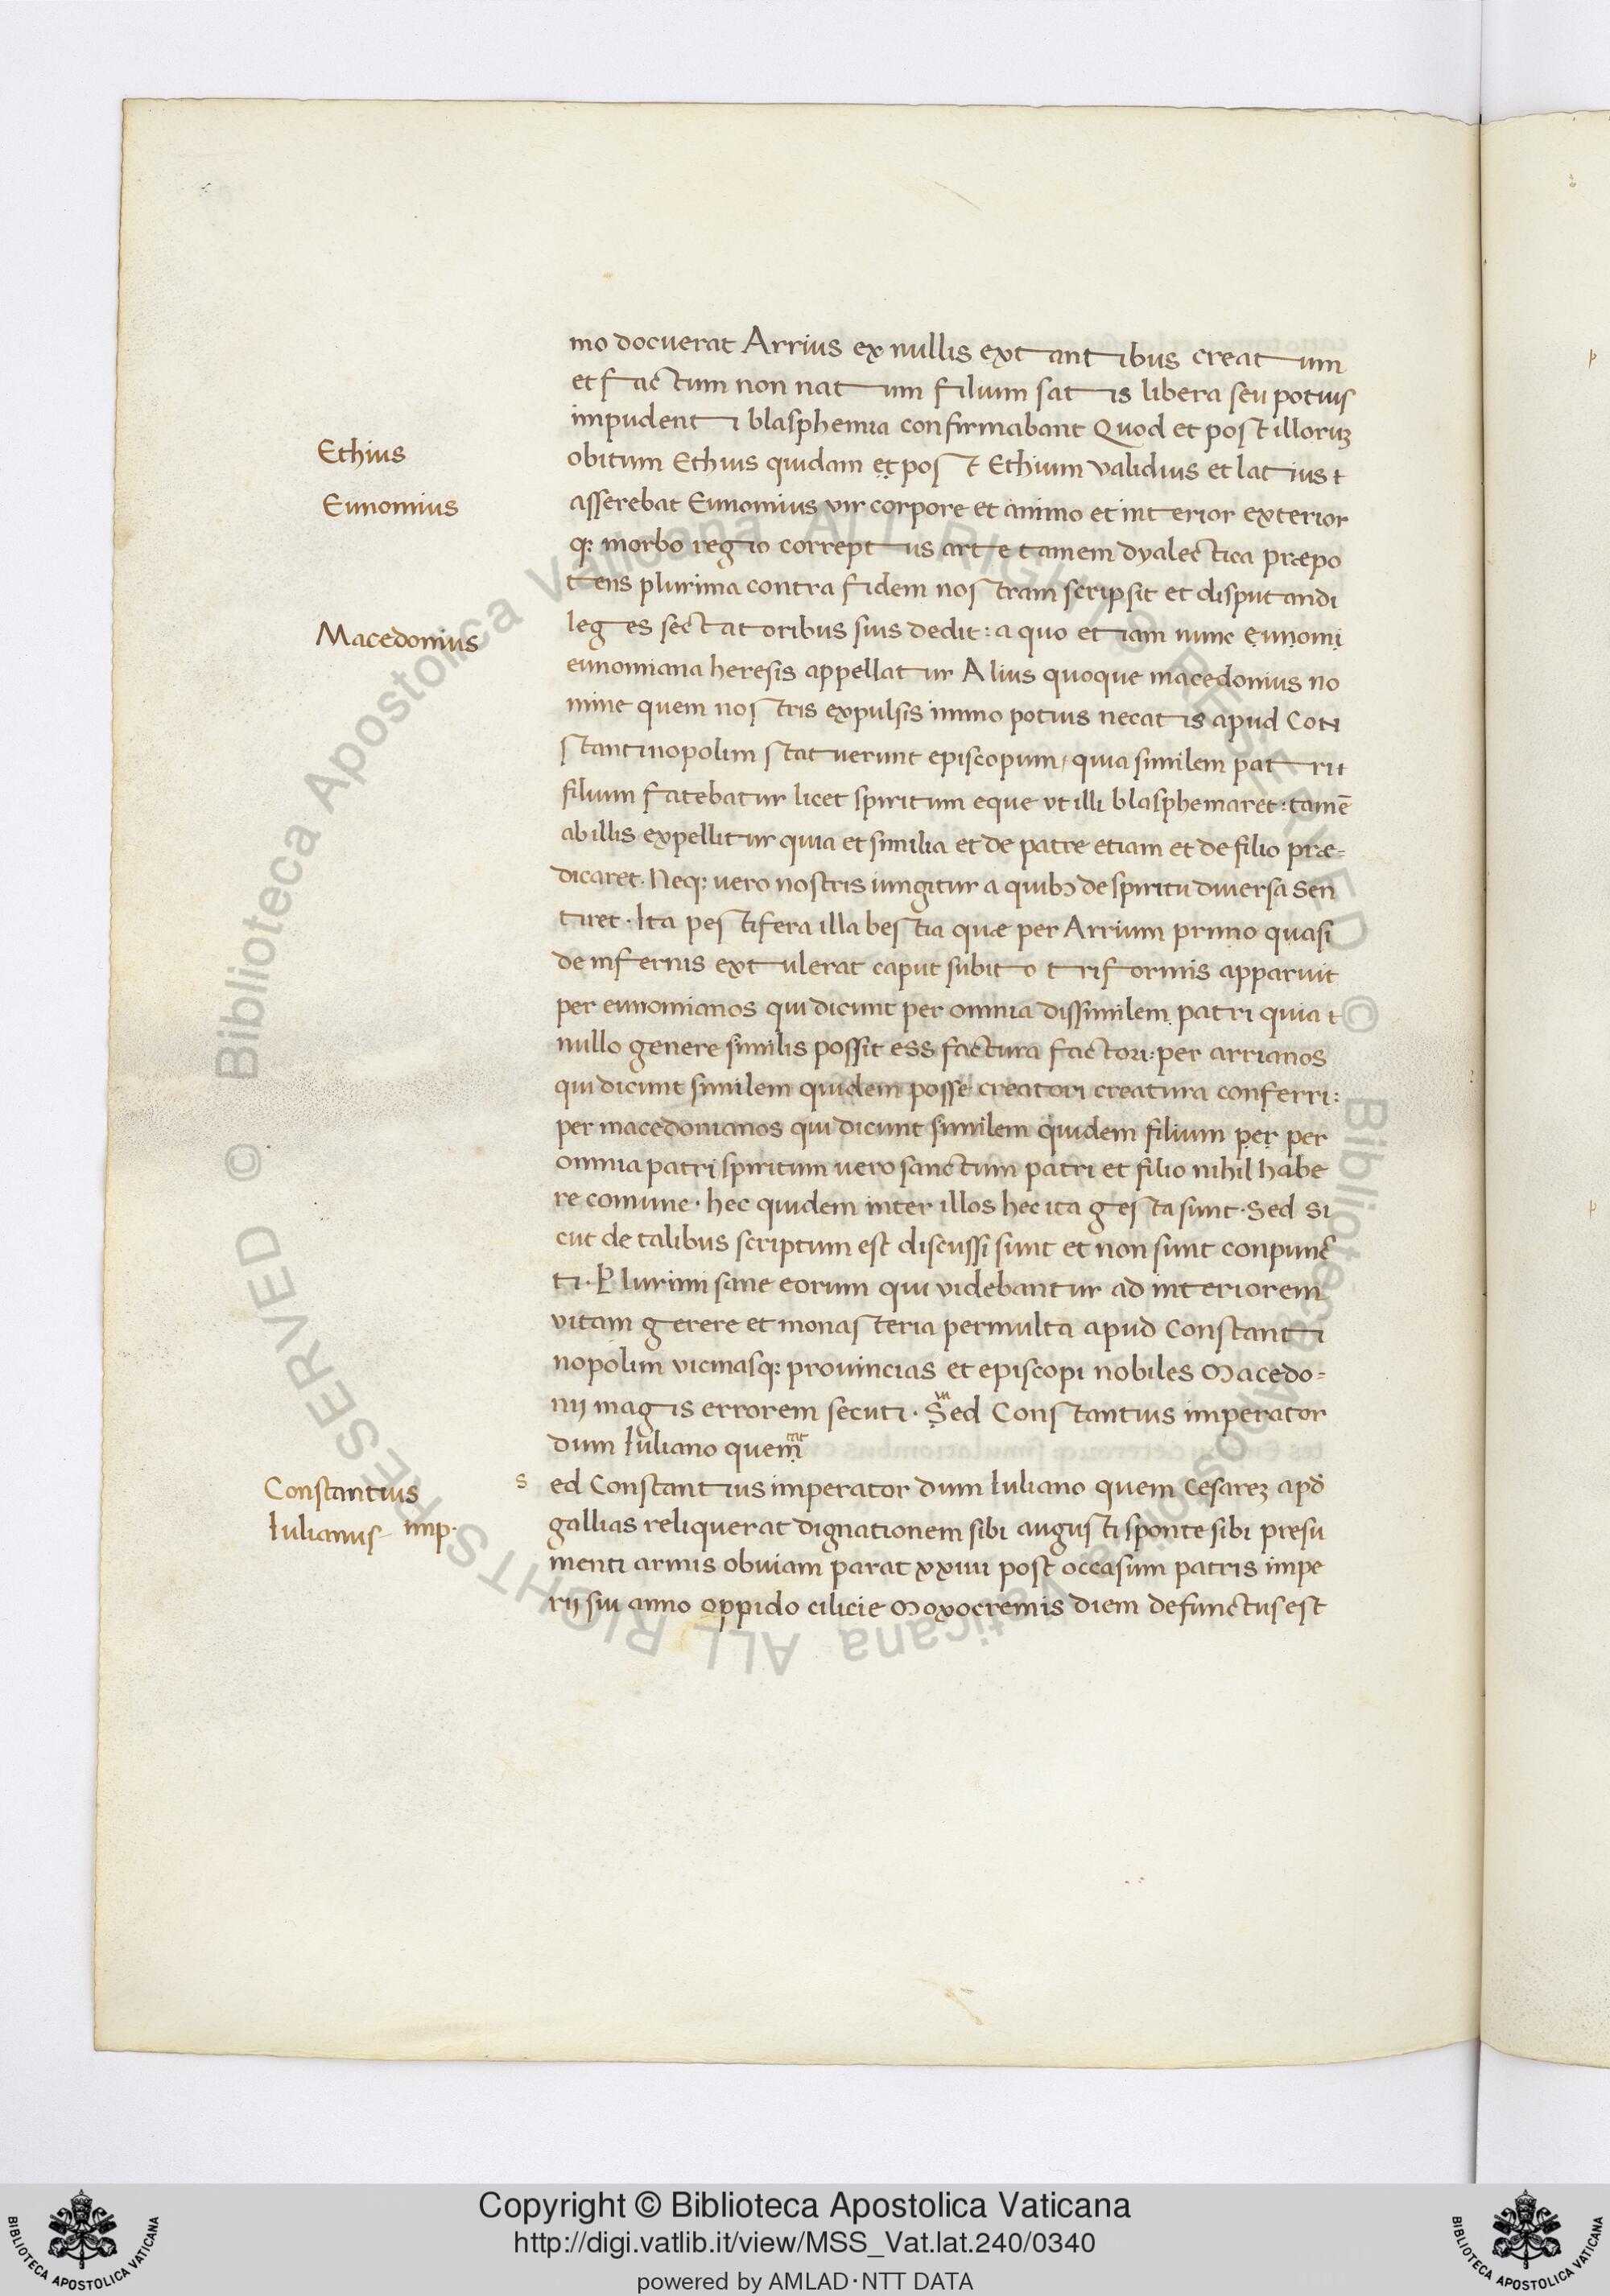 mo docuerat Arrius ex nullis extantibus creatum
et factum non natum filium satis libera seu potius
impudenti blasphemia confirmabant Quod et post illoruꝫ
Ethius
obitum Ethius quidam et post Ethium validius et latius t
Eunomius
asserebat Eunomius vir corpore et animo et interior exterior
qꝫ morbo regio correptus arte tamem dyalectica præpo
tens plurima contra fidem nostram scripsit et disputandi
Macedonius
leges sectatoribus suis dedit: a quo etiam nunc eunomi
eunomiana heresis appellatur Alius quoque macedonius no
mine quem nostris expulsis immo potius necatis apud Con
stantinopolim statuerunt episcopum, quia similem patri t
filium fatebatur licet spiritum eque vt illi blasphemaret: tamē
ab illis expellitur quia et similia et de patre etiam et de filio præ=
dicaret. Neqꝫ uero nostris iungitur a quibꝫ de spiritu diuersa sen
tiret. Ita pestifera illa bestia quæ per Arrium primo quasi
de infernis extulerat caput subito triformis apparuit
per eunomianos qui dicunt per omnia dissimilem patri quia t
nullo genere similis possit ess factura factori: per arrianos
qui dicunt similem quidem posse creatori creatura conferri:
per macedonianos qui dicunt similem quidem filium per per
omnia patri spiritum uero sanctum patri et filio nihil habe
re comune. hec quidem inter illos hec ita gesta sunt. Sed si
cut de talibus scriptum est discussi sunt et non sunt conpunc
ti. Plurimi sane eorum qui videbantur ad interiorem
vitam gerere et monasteria permulta apud Constanti
nopolim vicinasqꝫ prouincias et episcopi nobiles Macedo=
nij magis errorem secuti. Sed Constantius imperator
dum Iuliano quem
Constantius
sed Constantius imperator dum Iuliano quem Cesareꝫ apd̄
Iulianus imp.
gallias reliquerat dignationem sibi augusti sponte sibi presu
menti armis obuiam parat xxiiii post occasum patris impe
rij sui anno oppido cilicie Moxocremis diem defunctus est
Copyright © Biblioteca Apostolica Vaticana
http://digi.vatlib.it/view/MSS_Vat.lat.240/0340
powered by AMLAD·NTT DATA
BIBLIOTECA APOSTOLICA VATICANA
BIBLIOTECA APOSTOLICA VATICANA
© Biblioteca Apostolica Vaticana ALL RIGHTS RESERVED © Biblioteca Apostolica Vaticana ALL RIGHTS RESERVED